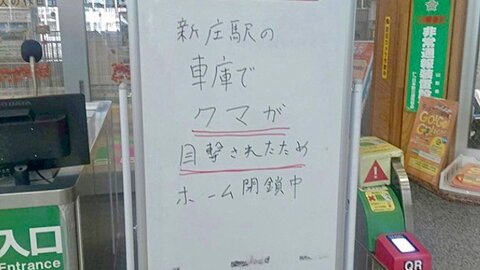 新庄駅の
車庫で
クマが
目撃されたため
ホーム閉鎖中
非常通報装置設
入口
Entrance
QR